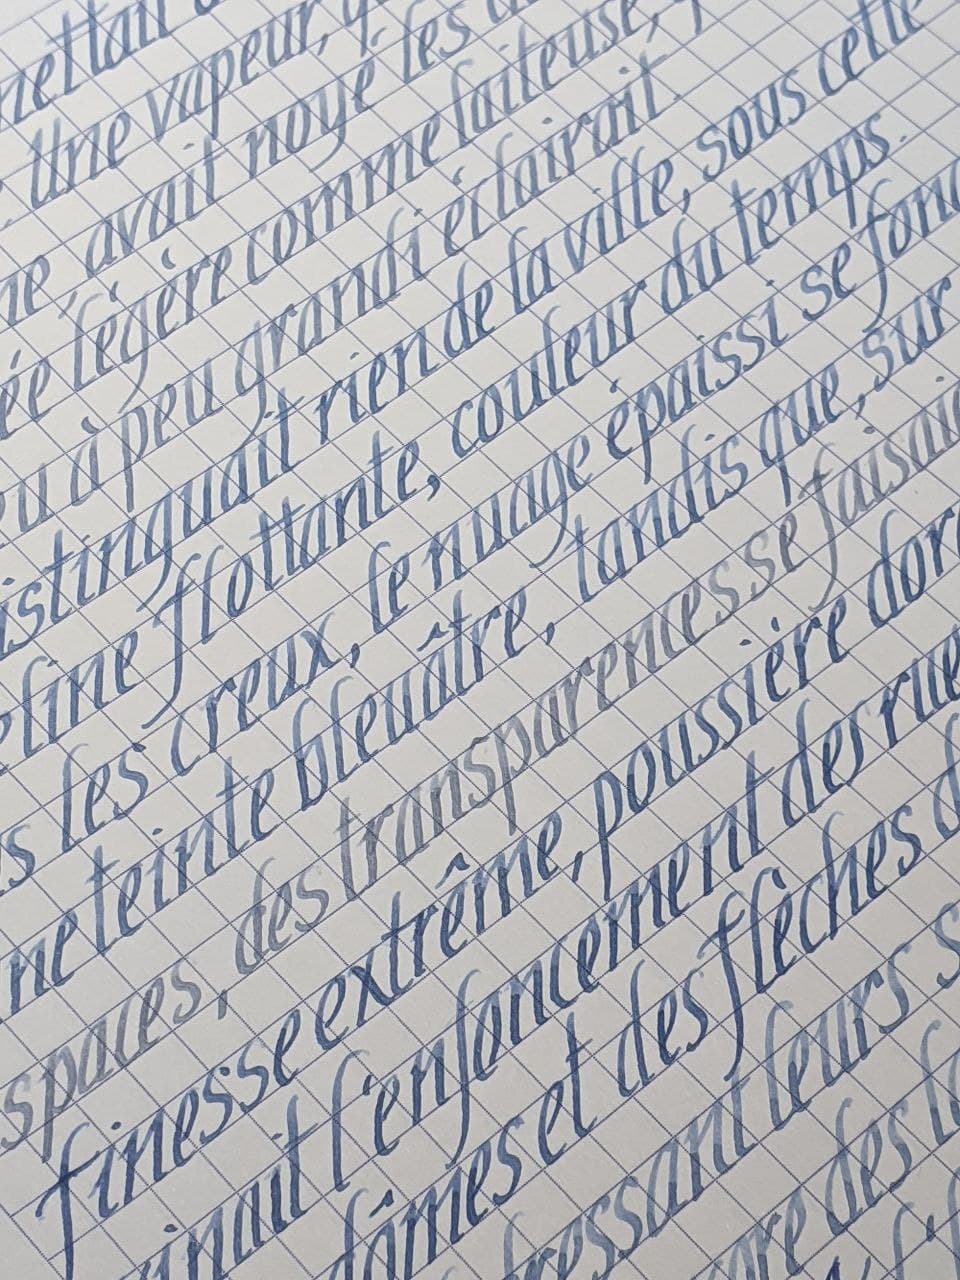 nettait
Une vapeur,
ne avait noyé les
ée légère comme laiteuse,
eu à peu grandi éclairait.
istinguait rien de la ville, sous cette
eline flottante, couleur du temps.
s les creux, le nuage épaissi se fonç
ne teinte bleuâtre, tandis que, sur
spaces, des transparences se faisaie
finesse extrême, poussière doré
inait l'enfoncement des rue
dômes et des flèches d
dressant leurs s
core des la